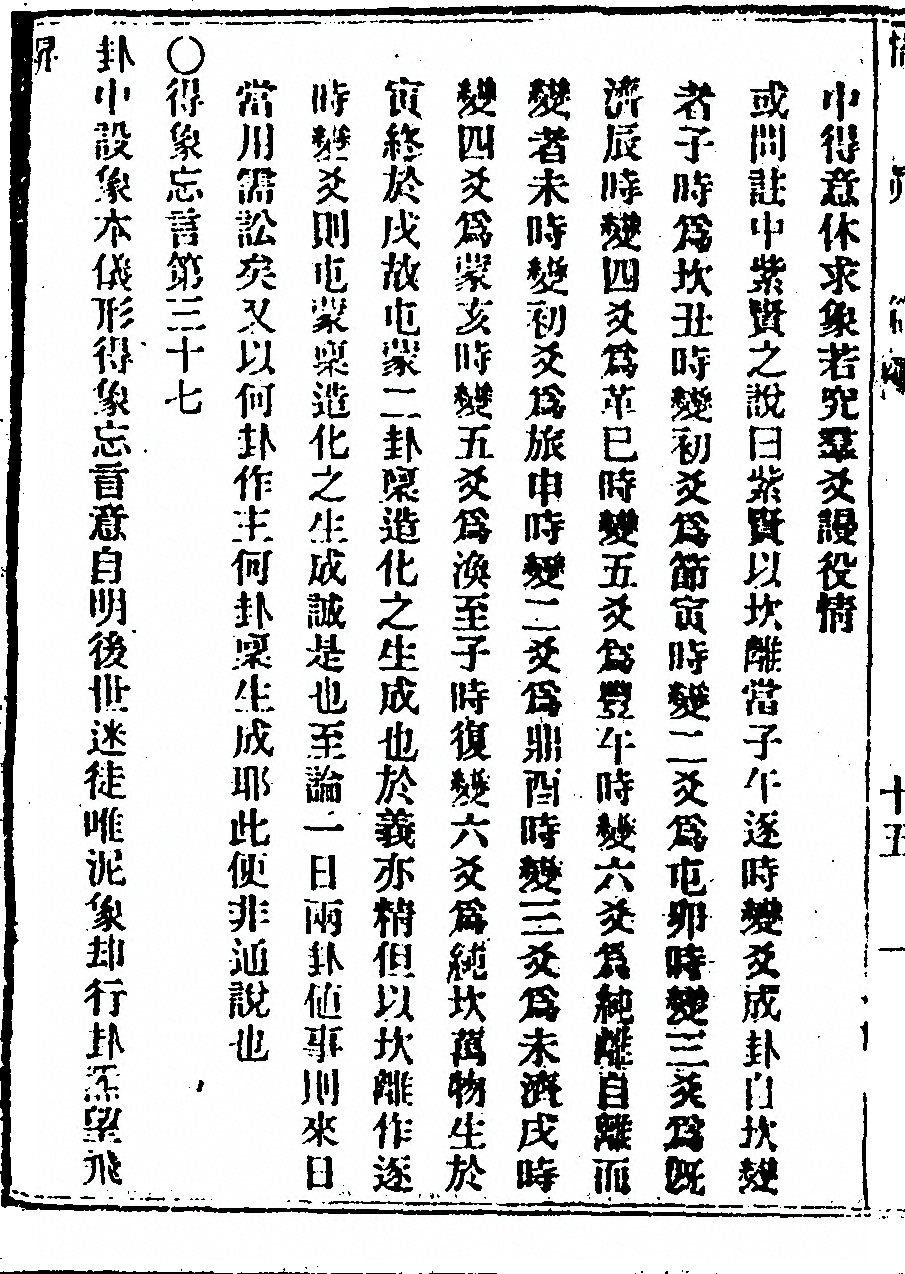 十五
中得意休求象若究羣爻謾役情
或問註中紫賢之說曰紫賢以坎離當子午逐時變爻成卦自坎變
者子時爲坎丑時變初爻爲節寅時變二爻爲屯卯時變三爻爲既
濟辰時變四爻爲革巳時變五爻爲豐午時變六爻爲純離自離而
變者未時變初爻爲旅申時變二爻爲鼎酉時變三爻爲未濟戌時
變四爻爲蒙亥時變五爻爲渙至子時復變六爻爲純坎萬物生於
寅終於戌故屯蒙二卦稟造化之生成也於義亦精但以坎離作逐
時變爻則屯蒙稟造化之生成誠是也至論一日兩卦値事則來日
當用需訟矣又以何卦作主何卦稟生成耶此便非通說也
〇得象忘言第三十七
卦中設象本儀形得象忘言意自明後世迷徒唯泥象却行卦炁望飛
昇